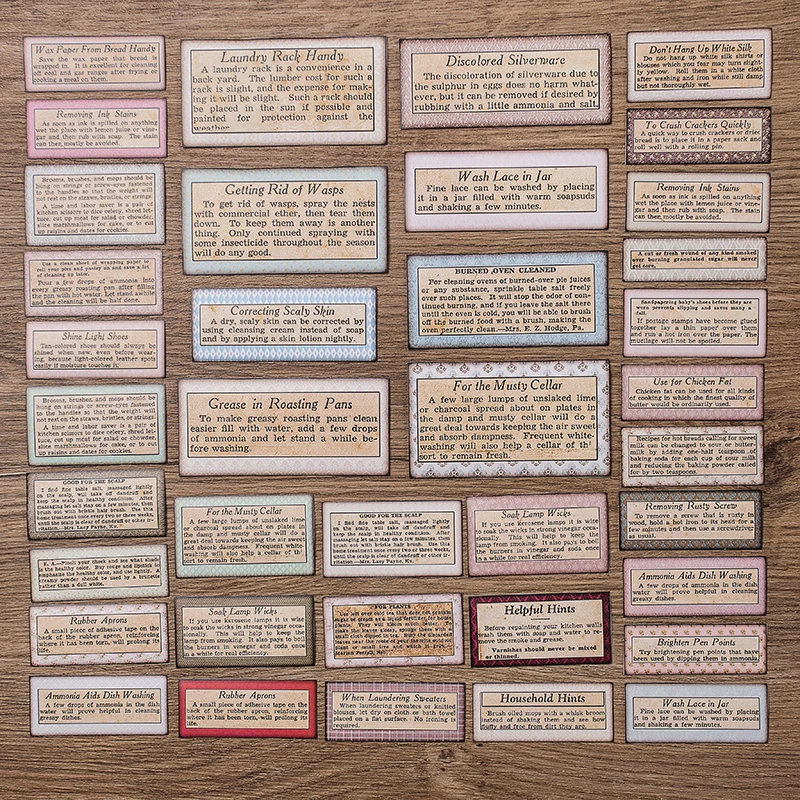 Wax Paper From Bread Handy
Save the wax paper that bread is
wrapped in. It is excellent for cleaning
off coal and gas ranges after frying or
cooking a meal on them.
Removing Ink Stains
As soon as ink is spilled on anything
wet the place with lemon juice or vine-
gar and then rub with soap. The stain
can then, mostly be avoided.
Brooms, brushes, and mops should be
hung on strings or screw-eyes fastened
to the handles so that the weight will
not rest on the straws, bristles, or strings.
A time and labor saver is a pair of
kitchen scissors to dice celery, shred let-
tuce, cut up meat for salad or chowder,
slice marshmallows for cakes, or to cut
up raisins and dates for cookies.
Use a clean sheet of wrapping paper to
roll your pies and pastry on and save a lot
of cleaning up later.
Pour a few drops of ammonia into
every greasy roasting pan after filling
the pan with hot water. Let stand awhile
and the cleaning will be half done.
Shine Light Shoes
Tan-colored shoes should always be
shined when new, even before wear-
ing, because light-colored leather spots
easily if moisture touches it.
Brooms, brushes, and mops should be
hung on strings or screw-eyes fastened
to the handles so that the weight will
not rest on the straws, bristles, or strings.
A time and labor saver is a pair of
kitchen scissors to dice celery, shred let-
tuce, cut up meat for salad or chowder,
slice marshmallows for cakes, or to cut
up raisins and dates for cookies.
GOOD FOR THE SCALP
I find fine table salt, massaged lightly
on the scalp, will take off dandruff and
keep the scalp in healthy condition. After
massaging let salt stay on a few minutes, then
brush out with bristle hair brush. Use this
home treatment once every two or three weeks,
until the scalp is clear of dandruff or other ir-
ritation.—Mrs. Lacy Payne, Ky.
Rubber Aprons
A small piece of adhesive tape on the
back of the rubber apron, reinforcing
where it has been torn, will prolong its
life.
Ammonia Aids Dish Washing
A few drops of ammonia in the dish
water will prove helpful in cleaning
greasy dishes.
Laundry Rack Handy
A laundry rack is a convenience in a
back yard. The lumber cost for such a
rack is slight, and the expense for mak-
ing it will be slight. Such a rack should
be placed in the sun if possible and
painted for protection against the
weather.
Getting Rid of Wasps
To get rid of wasps, spray the nests
with commercial ether, then tear them
down. To keep them away is another
thing. Only continued spraying with
some insecticide throughout the season
will do any good.
Correcting Scaly Skin
A dry, scaly skin can be corrected by
using cleansing cream instead of soap
and by applying a skin lotion nightly.
Grease in Roasting Pans
To make greasy roasting pans clean
easier fill with water, add a few drops
of ammonia and let stand a while be-
fore washing.
For the Musty Cellar
A few large lumps of unslaked lime
or charcoal spread about on plates in
the damp and musty cellar will do a
great deal towards keeping the air sweet
and absorb dampness. Frequent white-
washing will also help a cellar of th'
sort to remain fresh.
Soak Lamp Wicks
If you use kerosene lamps it is wise
to soak the wicks in strong vinegar occa-
sionally. This will help to keep the
lamp from smoking. It also pays to boil
the burners in vinegar and soda once
in a while for real efficiency.
Rubber Aprons
A small piece of adhesive tape on the
back of the rubber apron, reinforcing
where it has been torn, will prolong its
life.
Discolored Silverware
The discoloration of silverware due to
the sulphur in eggs does no harm what-
ever, but it can be removed if desired by
rubbing with a little ammonia and salt.
Wash Lace in Jar
Fine lace can be washed by placing
it in a jar filled with warm soapsuds
and shaking a few minutes.
BURNED OVEN CLEANED
For cleaning ovens of burned-over pie juices
or any substance, sprinkle table salt freely
over such places. It will stop the odor of con-
tinued burning, and if you leave the salt there
until the oven is cold, you will be able to brush
off the burned food with a brush, making the
oven perfectly clean.—Mrs. E. Z. Hodge, Pa.
For the Musty Cellar
A few large lumps of unslaked lime
or charcoal spread about on plates in
the damp and musty cellar will do a
great deal towards keeping the air sweet
and absorb dampness. Frequent white-
washing will also help a cellar of th'
sort to remain fresh.
GOOD FOR THE SCALP
I find fine table salt, massaged lightly
on the scalp, will take off dandruff and
keep the scalp in healthy condition. After
massaging let salt stay on a few minutes, then
brush out with bristle hair brush. Use this
home treatment once every two or three weeks,
until the scalp is clear of dandruff or other ir-
ritation.—Mrs. Lacy Payne, Ky.
Soak Lamp Wicks
If you use kerosene lamps it is wise
to soak the wicks in strong vinegar occa-
sionally. This will help to keep the
lamp from smoking. It also pays to boil
the burners in vinegar and soda once
in a while for real efficiency.
FOR PLANTS
Helpful Hints
Before repainting your kitchen walls
wash them with soap and water to re-
move the smoke and grease.
Varnishes should never be mixed
or thinned.
When Laundering Sweaters
When laundering sweaters or knitted
blouses, let dry on cloth or bath towel
placed on a flat surface. No ironing is
required.
Household Hints
Brush oiled mops with a whisk broom
instead of shaking them and see how
fluffy and free from dirt they are.
Don't Hang Up White Silk
Do not hang up white silk shirts or
blouses which you fear may turn slight-
ly yellow. Roll them in a white cloth
after washing and iron while still damp
but not thoroughly wet.
To Crush Crackers Quickly
A quick way to crush crackers or dried
bread is to place it in a paper sack and
roll well with a rolling pin.
Removing Ink Stains
As soon as ink is spilled on anything
wet the place with lemon juice or vine-
gar and then rub with soap. The stain
can then, mostly be avoided.
A cut or fresh wound of any kind smoked
over burning granulated sugar will never
get sore.
Sandpapering baby's shoes before they are
worn prevents slipping and saves many a
fall.
If postage stamps have become glued
together lay a thin paper over them
and run a hot iron over the paper. The
mucilage will not be spoiled.
Use for Chicken Fat
Chicken fat can be used for all kinds
of cooking in which the finest quality of
butter would be ordinarily used.
Recipes for hot breads calling for sweet
milk can be changed to sour or butter-
milk by adding one-half teaspoon of
baking soda for each cup of sour milk
and reducing the baking powder called
for by two teaspoons.
Removing Rusty Screw
To remove a screw that is rusty in
wood, hold a hot iron to its head for a
few minutes and then use a screwdriver
as usual.
Ammonia Aids Dish Washing
A few drops of ammonia in the dish
water will prove helpful in cleaning
greasy dishes.
Brighten Pen Points
Try brightening pen points that have
been used by dipping them in ammonia
Wash Lace in Jar
Fine lace can be washed by placing
it in a jar filled with warm soapsuds
and shaking a few minutes.